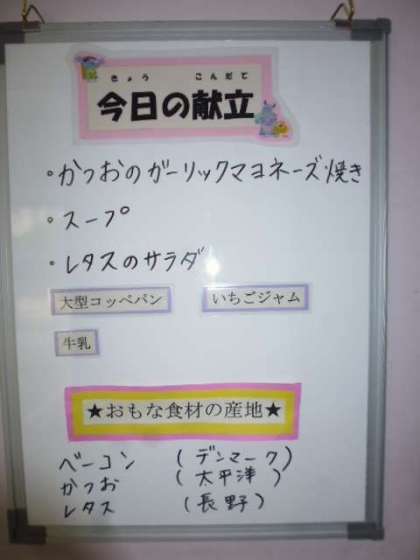 きょう こんだて
今日の献立
・かつおのガーリックマヨネーズ焼き
・スープ
・レタスのサラダ
大型コッペパン いちごジャム
牛乳
★おもな食材の産地★
ベーコン (デンマーク)
かつお (太平洋)
レタス (長野)